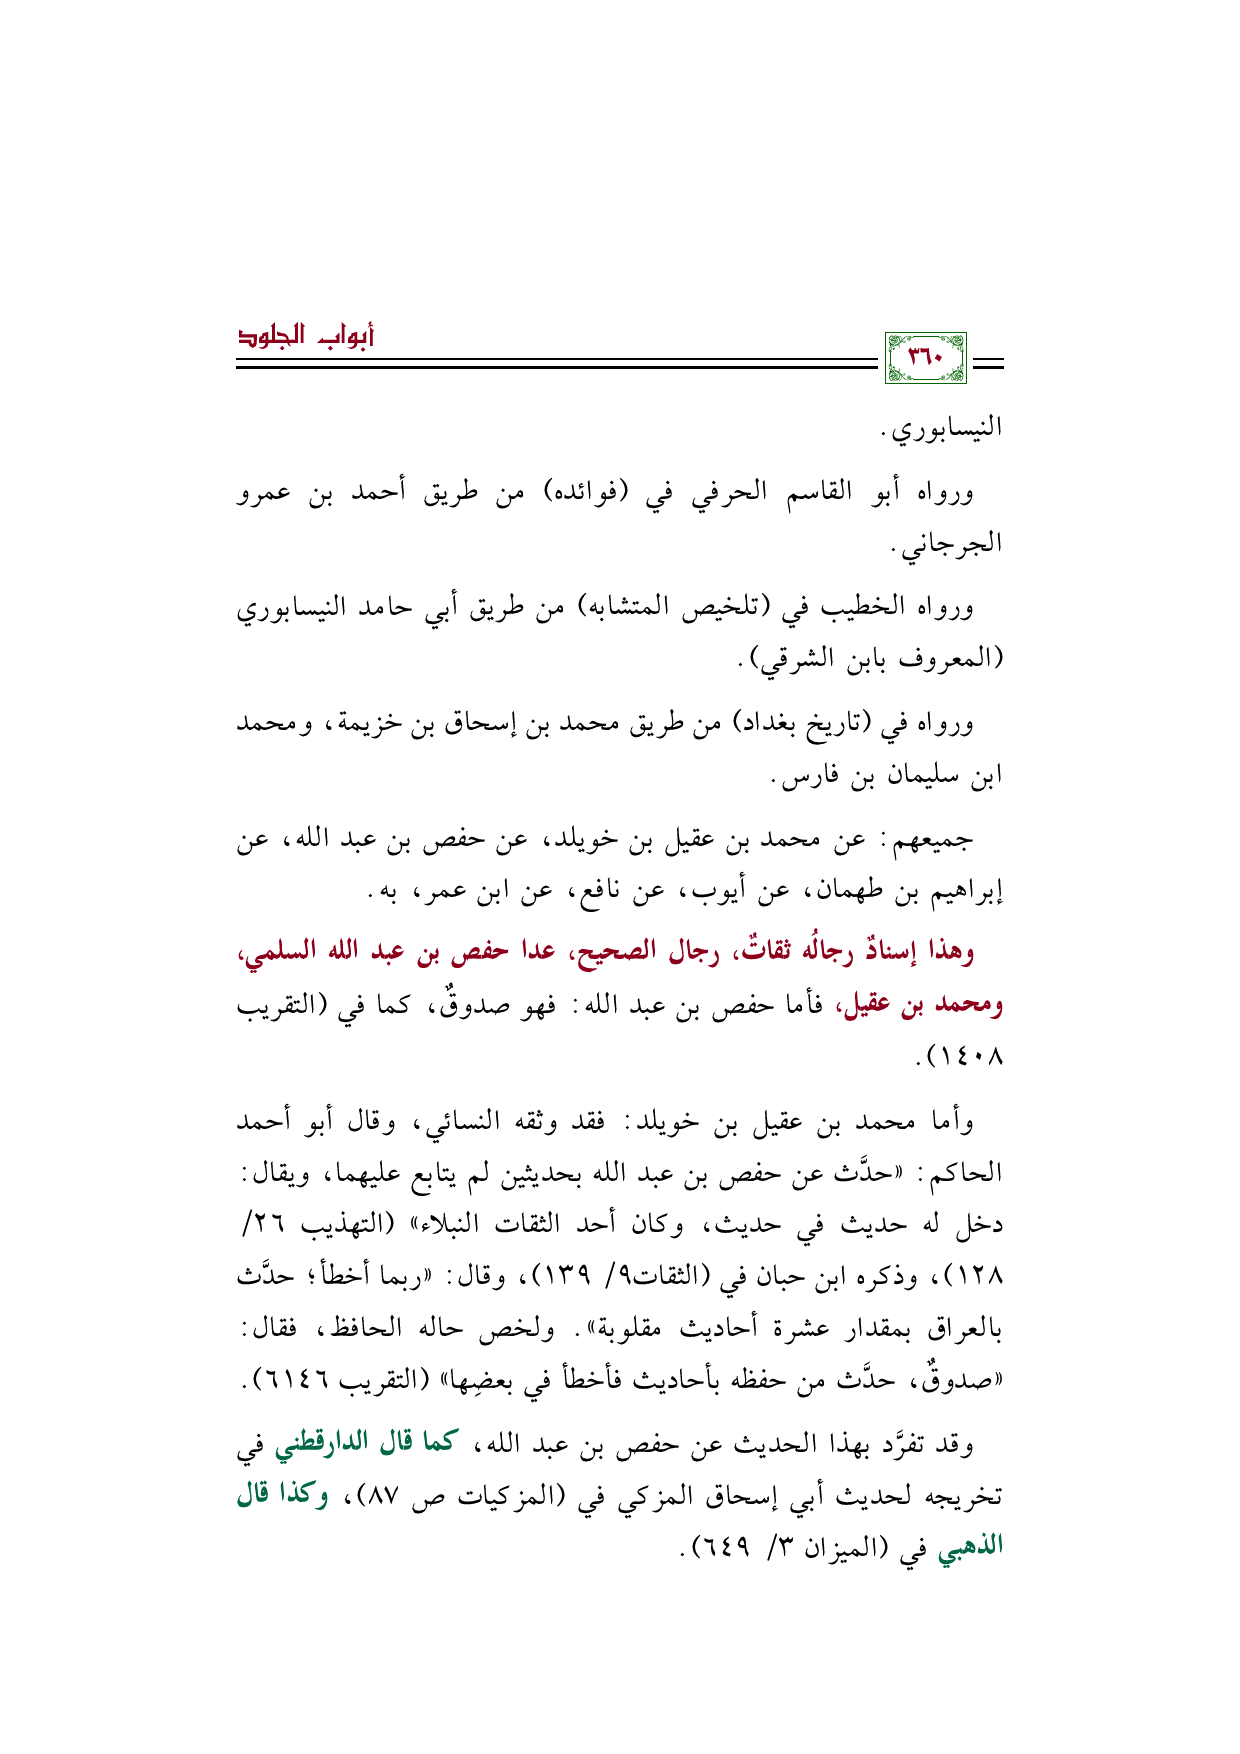 أبواب الجلود
٣٦٠
النيسابوري.
ورواه أبو القاسم الحرفي في (فوائده) من طريق أحمد بن عمرو
الجرجاني.
ورواه الخطيب في (تلخيص المتشابه) من طريق أبي حامد النيسابوري
(المعروف بابن الشرقي).
ورواه في (تاريخ بغداد) من طريق محمد بن إسحاق بن خزيمة، ومحمد
ابن سليمان بن فارس.
جميعهم: عن محمد بن عقيل بن خويلد، عن حفص بن عبد الله، عن
إبراهيم بن طهمان، عن أيوب، عن نافع، عن ابن عمر، به.
وهذا إسنادٌ رجالُه ثقاتٌ، رجال الصحيح، عدا حفص بن عبد الله السلمي،
ومحمد بن عقيل، فأما حفص بن عبد الله: فهو صدوقٌ، كما في (التقريب
١٤٠٨).
وأما محمد بن عقيل بن خويلد: فقد وثقه النسائي، وقال أبو أحمد
الحاكم: «حدَّث عن حفص بن عبد الله بحديثين لم يتابع عليهما، ويقال:
دخل له حديث في حديث، وكان أحد الثقات النبلاء» (التهذيب ٢٦/
١٢٨)، وذكره ابن حبان في (الثقات٩/ ١٣٩)، وقال: «ربما أخطأ؛ حدَّث
بالعراق بمقدار عشرة أحاديث مقلوبة». ولخص حاله الحافظ، فقال:
«صدوقٌ، حدَّث من حفظه بأحاديث فأخطأ في بعضِها» (التقريب ٦١٤٦).
وقد تفرَّد بهذا الحديث عن حفص بن عبد الله، كما قال الدارقطني في
تخريجه لحديث أبي إسحاق المزكي في (المزكيات ص ٨٧)، وكذا قال
الذهبي في (الميزان ٣/ ٦٤٩).